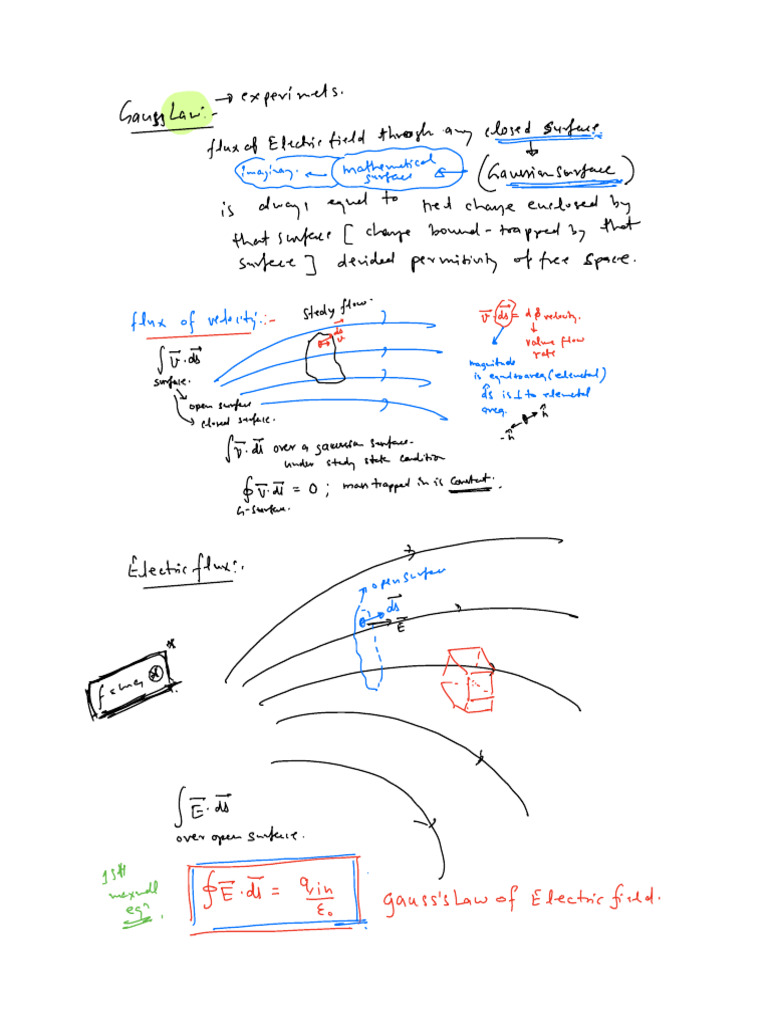 Gauss Law:- → experimets.
flux of Electric field through any closed surface
imaginary. ← mathematical surface ← (Gaussian surface)
is always equal to net charge enclosed by
that surface [ charge bound-trapped by that
surface ] devided permitivity of free space.
flux of velocity:-
Stedy flow.
∫ v̅·ds
surface.
→ open surface
→ closed surface.
ds
v
v̅·ds = dφ velocity.
↓
value flow
rate
magnitude
is equal to area (elemetal)
ds is ⊥ to elemetal
area.
-n̂
n̂
∫ v̅·ds over a gaussian surface.
under study state condition
∮ v̅·ds = 0 ; mass trapped in is constant.
G-surface.
Electric flux:.
open surface
ds
E̅
∫ E̅·ds
over open surface.
1st
maxwell
eqⁿ.
∮ E̅·ds = qin/ε₀
Gauss's Law of Electric field.